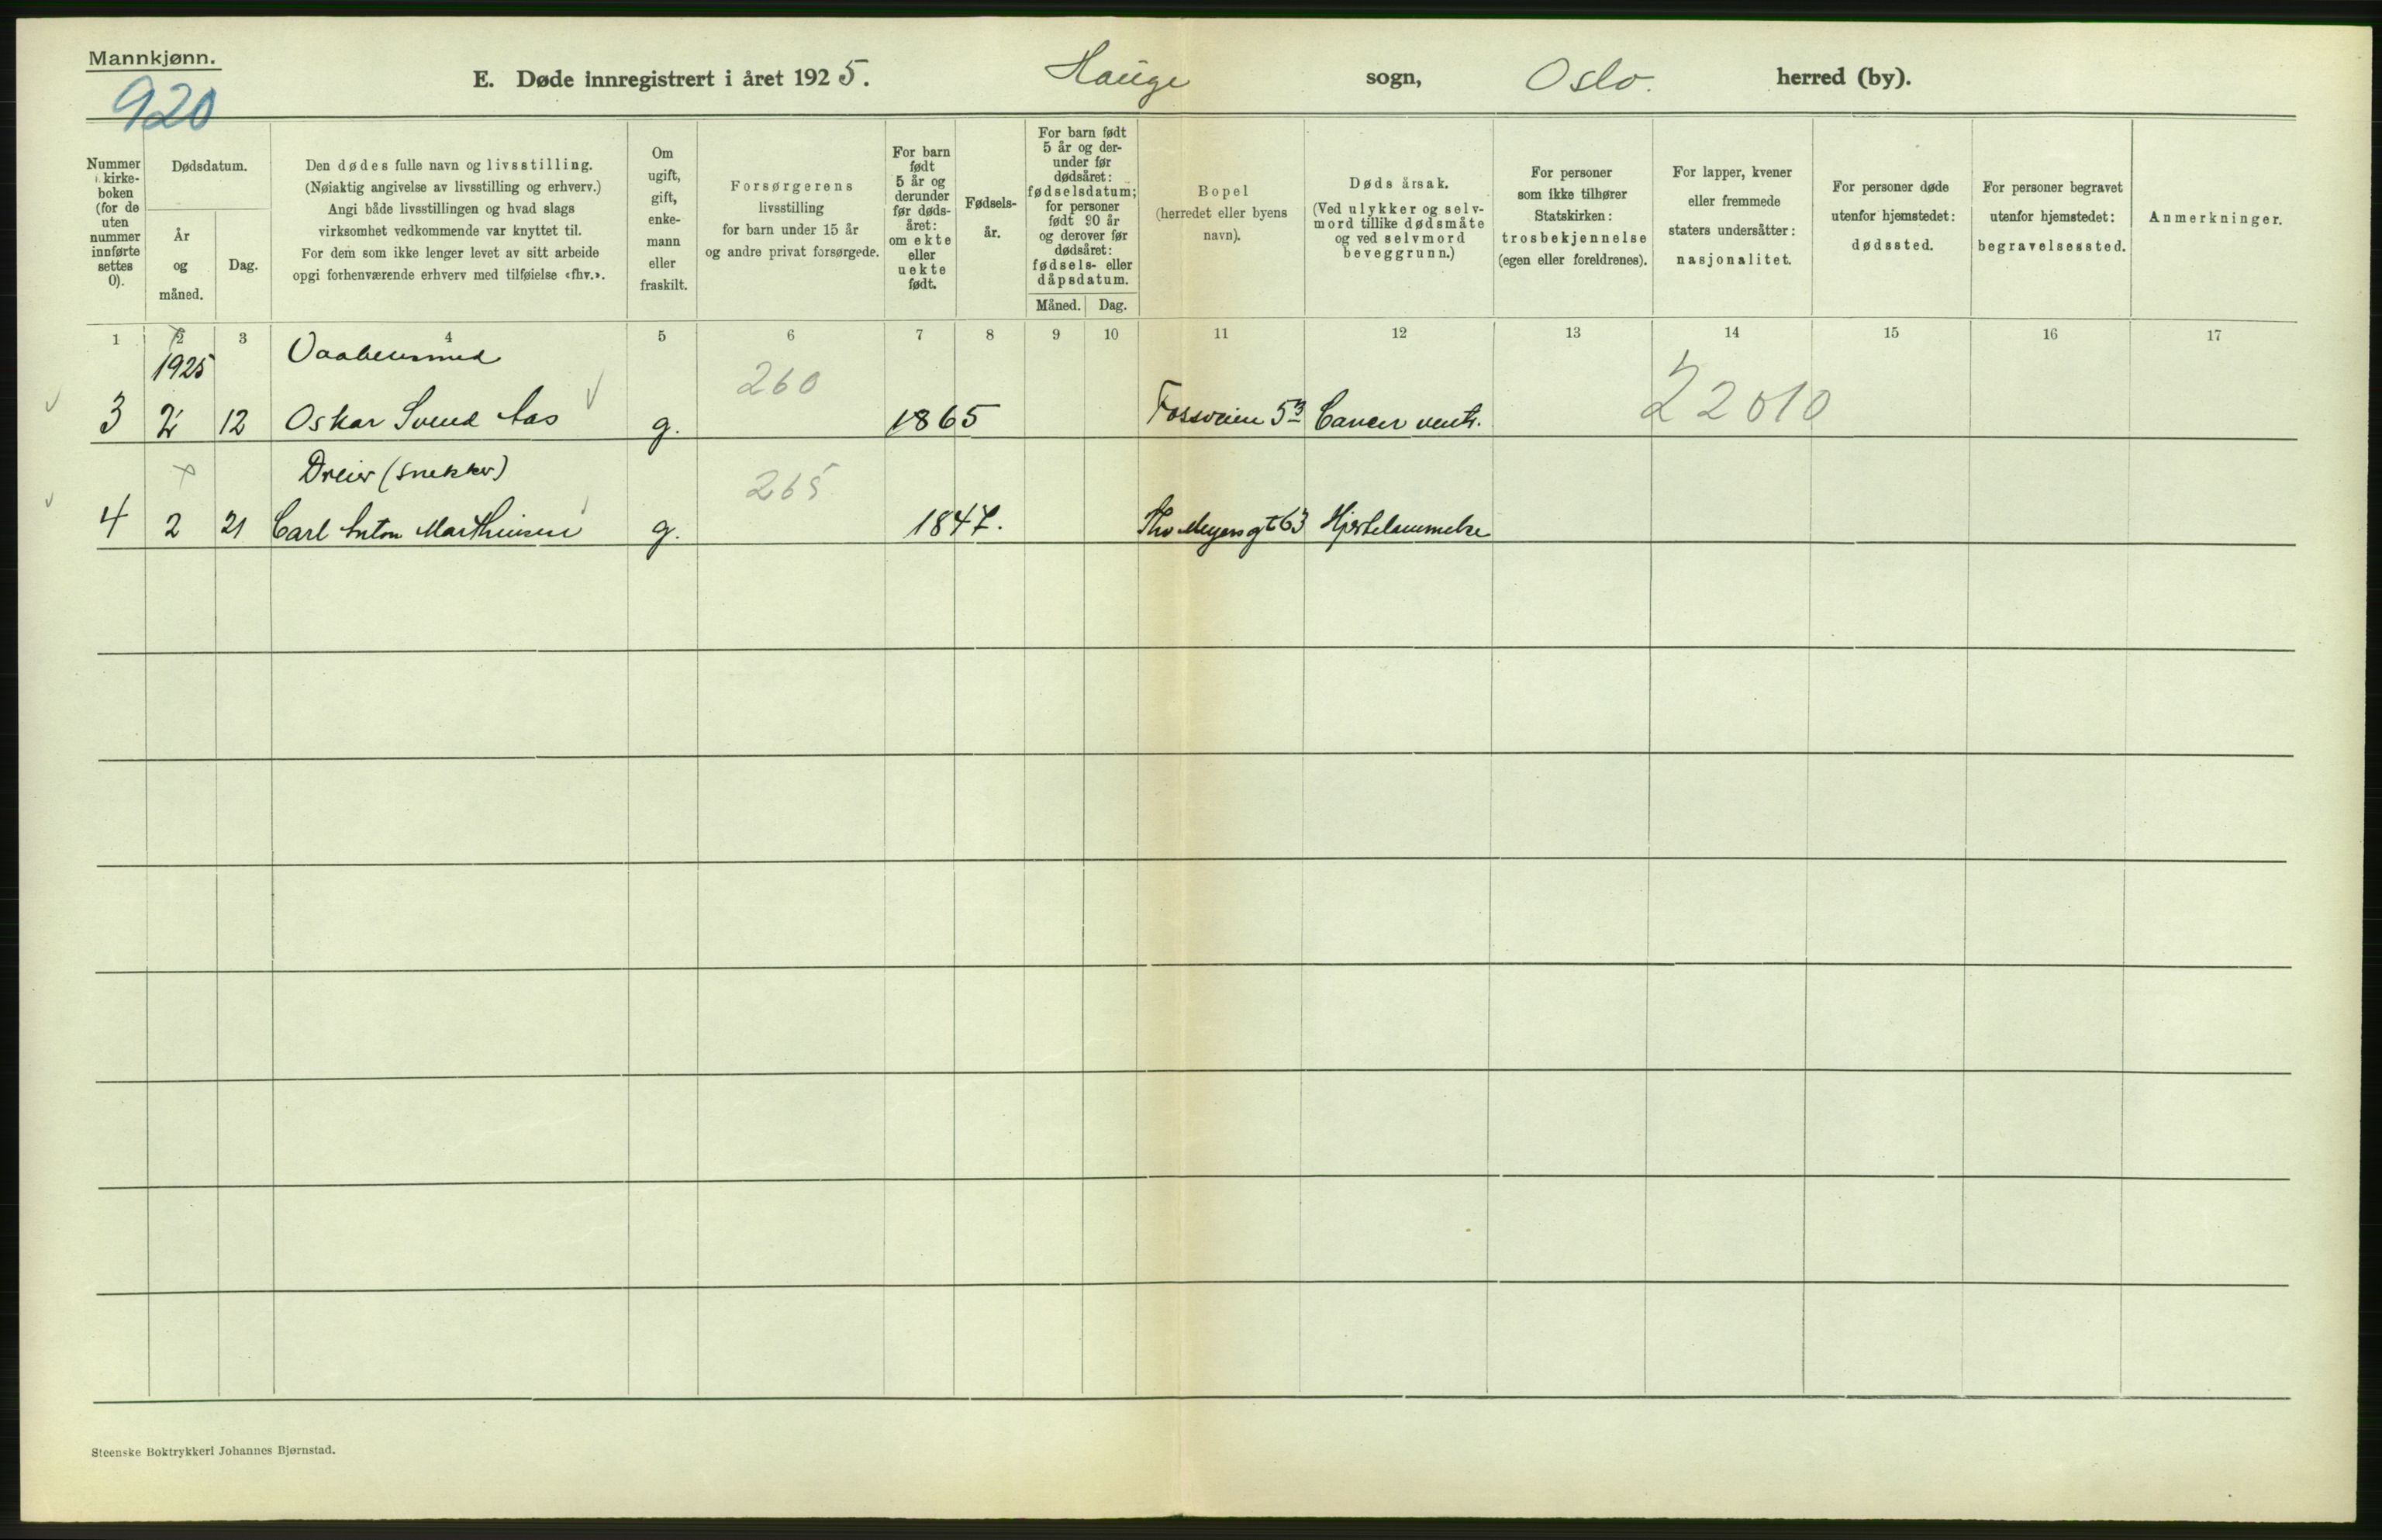 Mannkjønn.
920
E. Døde innregistrert i året 1925. Hauge sogn, Oslo. herred (by).
Nummer i kirke-
boken
(for de
uten
nummer
innførte
settes
0).
Dødsdatum.
År
og
måned.
Dag.
Den dødes fulle navn og livsstilling.
(Nøiaktig angivelse av livsstilling og erhverv.)
Angi både livsstillingen og hvad slags
virksomhet vedkommende var knyttet til.
For dem som ikke lenger levet av sitt arbeide
opgi forhenværende erhverv med tilføielse «fhv.».
Om
ugift,
gift,
enke-
mann
eller
fraskilt.
Forsørgerens
livsstilling
for barn under 15 år
og andre privat forsørgede.
For barn
født
5 år og
derunder
før døds-
året:
om ekte
eller
uekte
født.
Fødsels-
år.
For barn født
5 år og der-
under før
dødsåret:
fødselsdatum;
for personer
født 90 år
og derover før
dødsåret:
fødsels- eller
dåpsdatum.
Måned. Dag.
Bopel
(herredet eller byens
navn).
Døds årsak.
(Ved ulykker og selv-
mord tillike dødsmåte
og ved selvmord
beveggrunn.)
For personer
som ikke tilhører
Statskirken:
trosbekjennelse
(egen eller foreldrenes).
For lapper, kvener
eller fremmede
staters undersåtter:
nasjonalitet.
For personer døde
utenfor hjemstedet:
dødssted.
For personer begravet
utenfor hjemstedet:
begravelsessted.
Anmerkninger.
1 2 3 4 5 6 7 8 9 10 11 12 13 14 15 16 17
1925 Vaabensmed 260
3 2 12 Oskar Svend Aas g. 1865 Fossveien 5 Cancer ventr. 22010
Dreier (snekker) 265
4 2 21 Carl Anton Marthinsen g. 1847. Thv Meyersgt 63 Hjertelammelse
Steenske Boktrykkeri Johannes Bjørnstad.